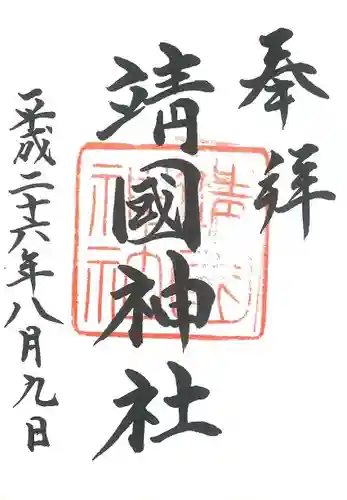 奉拝
靖國神社
平成二十六年八月九日
靖國神社